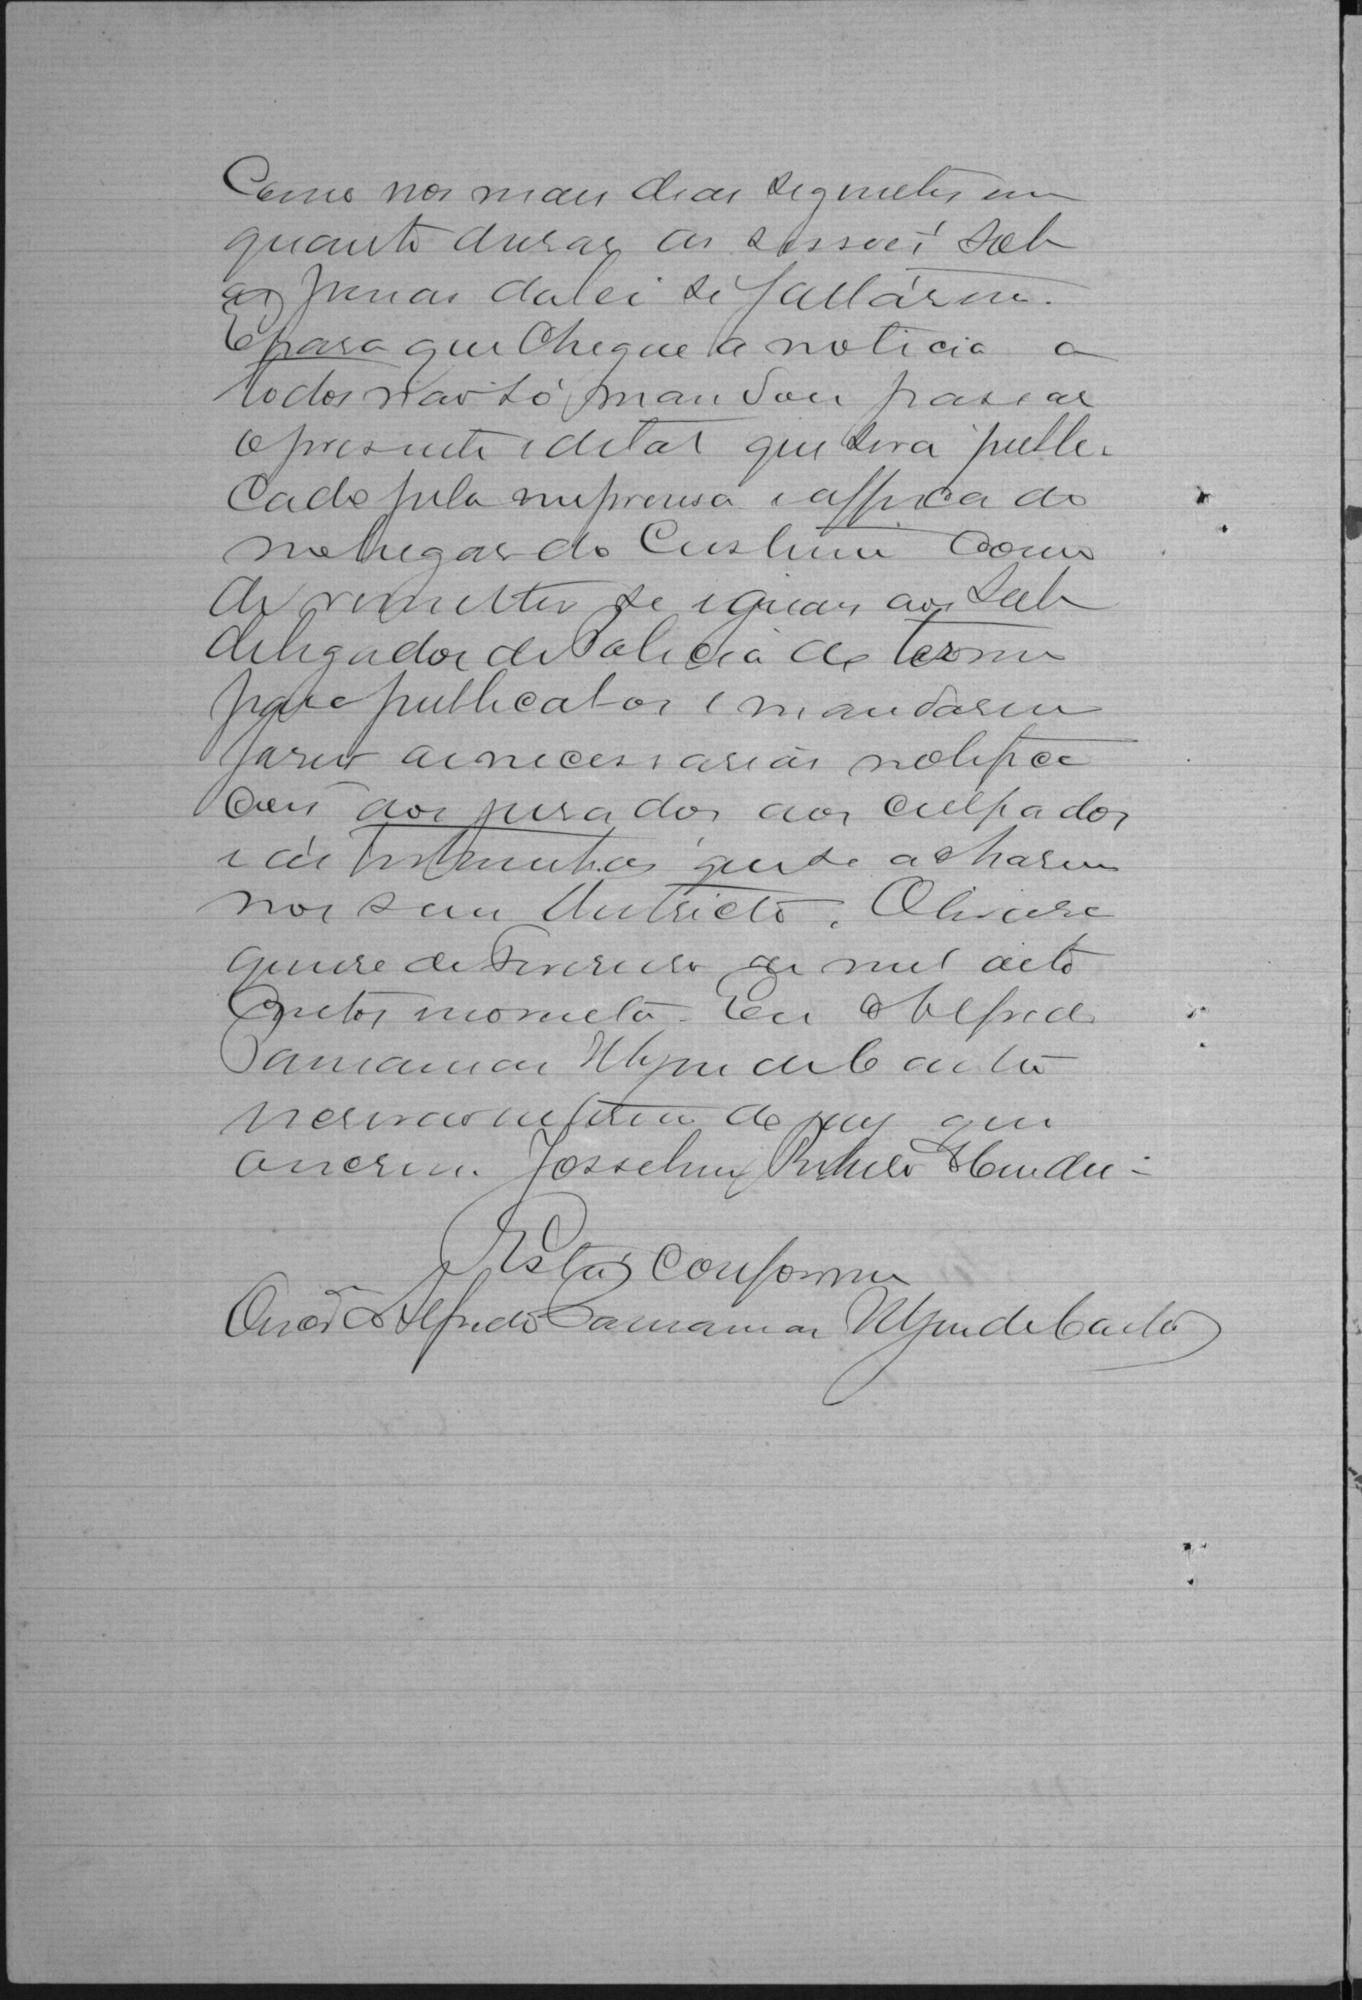 Como nos mais dias seguintes em
quanto durar as sessões sob
as penas da lei se faltárem.
E para que chegue a noticia a
todos não só mandou passar
o presente edital que será publi
cado pela imprensa e affixado
no lugar do Custume Como
de remetter se iguais aos Sub
delegados de Policia do termo
para publicalos e mandarem
fazer as necessarias notifica
coes aos jurados aos culpados
e ás testemunhas que se acharem
nos seus districto.
quinze de Fevereiro de mil oito
Centos noventa. Eu Alfredo
de Canto
que
escrevi. Josselino Ribeiro Mendes
Está Conforme
Alfredo de Canto